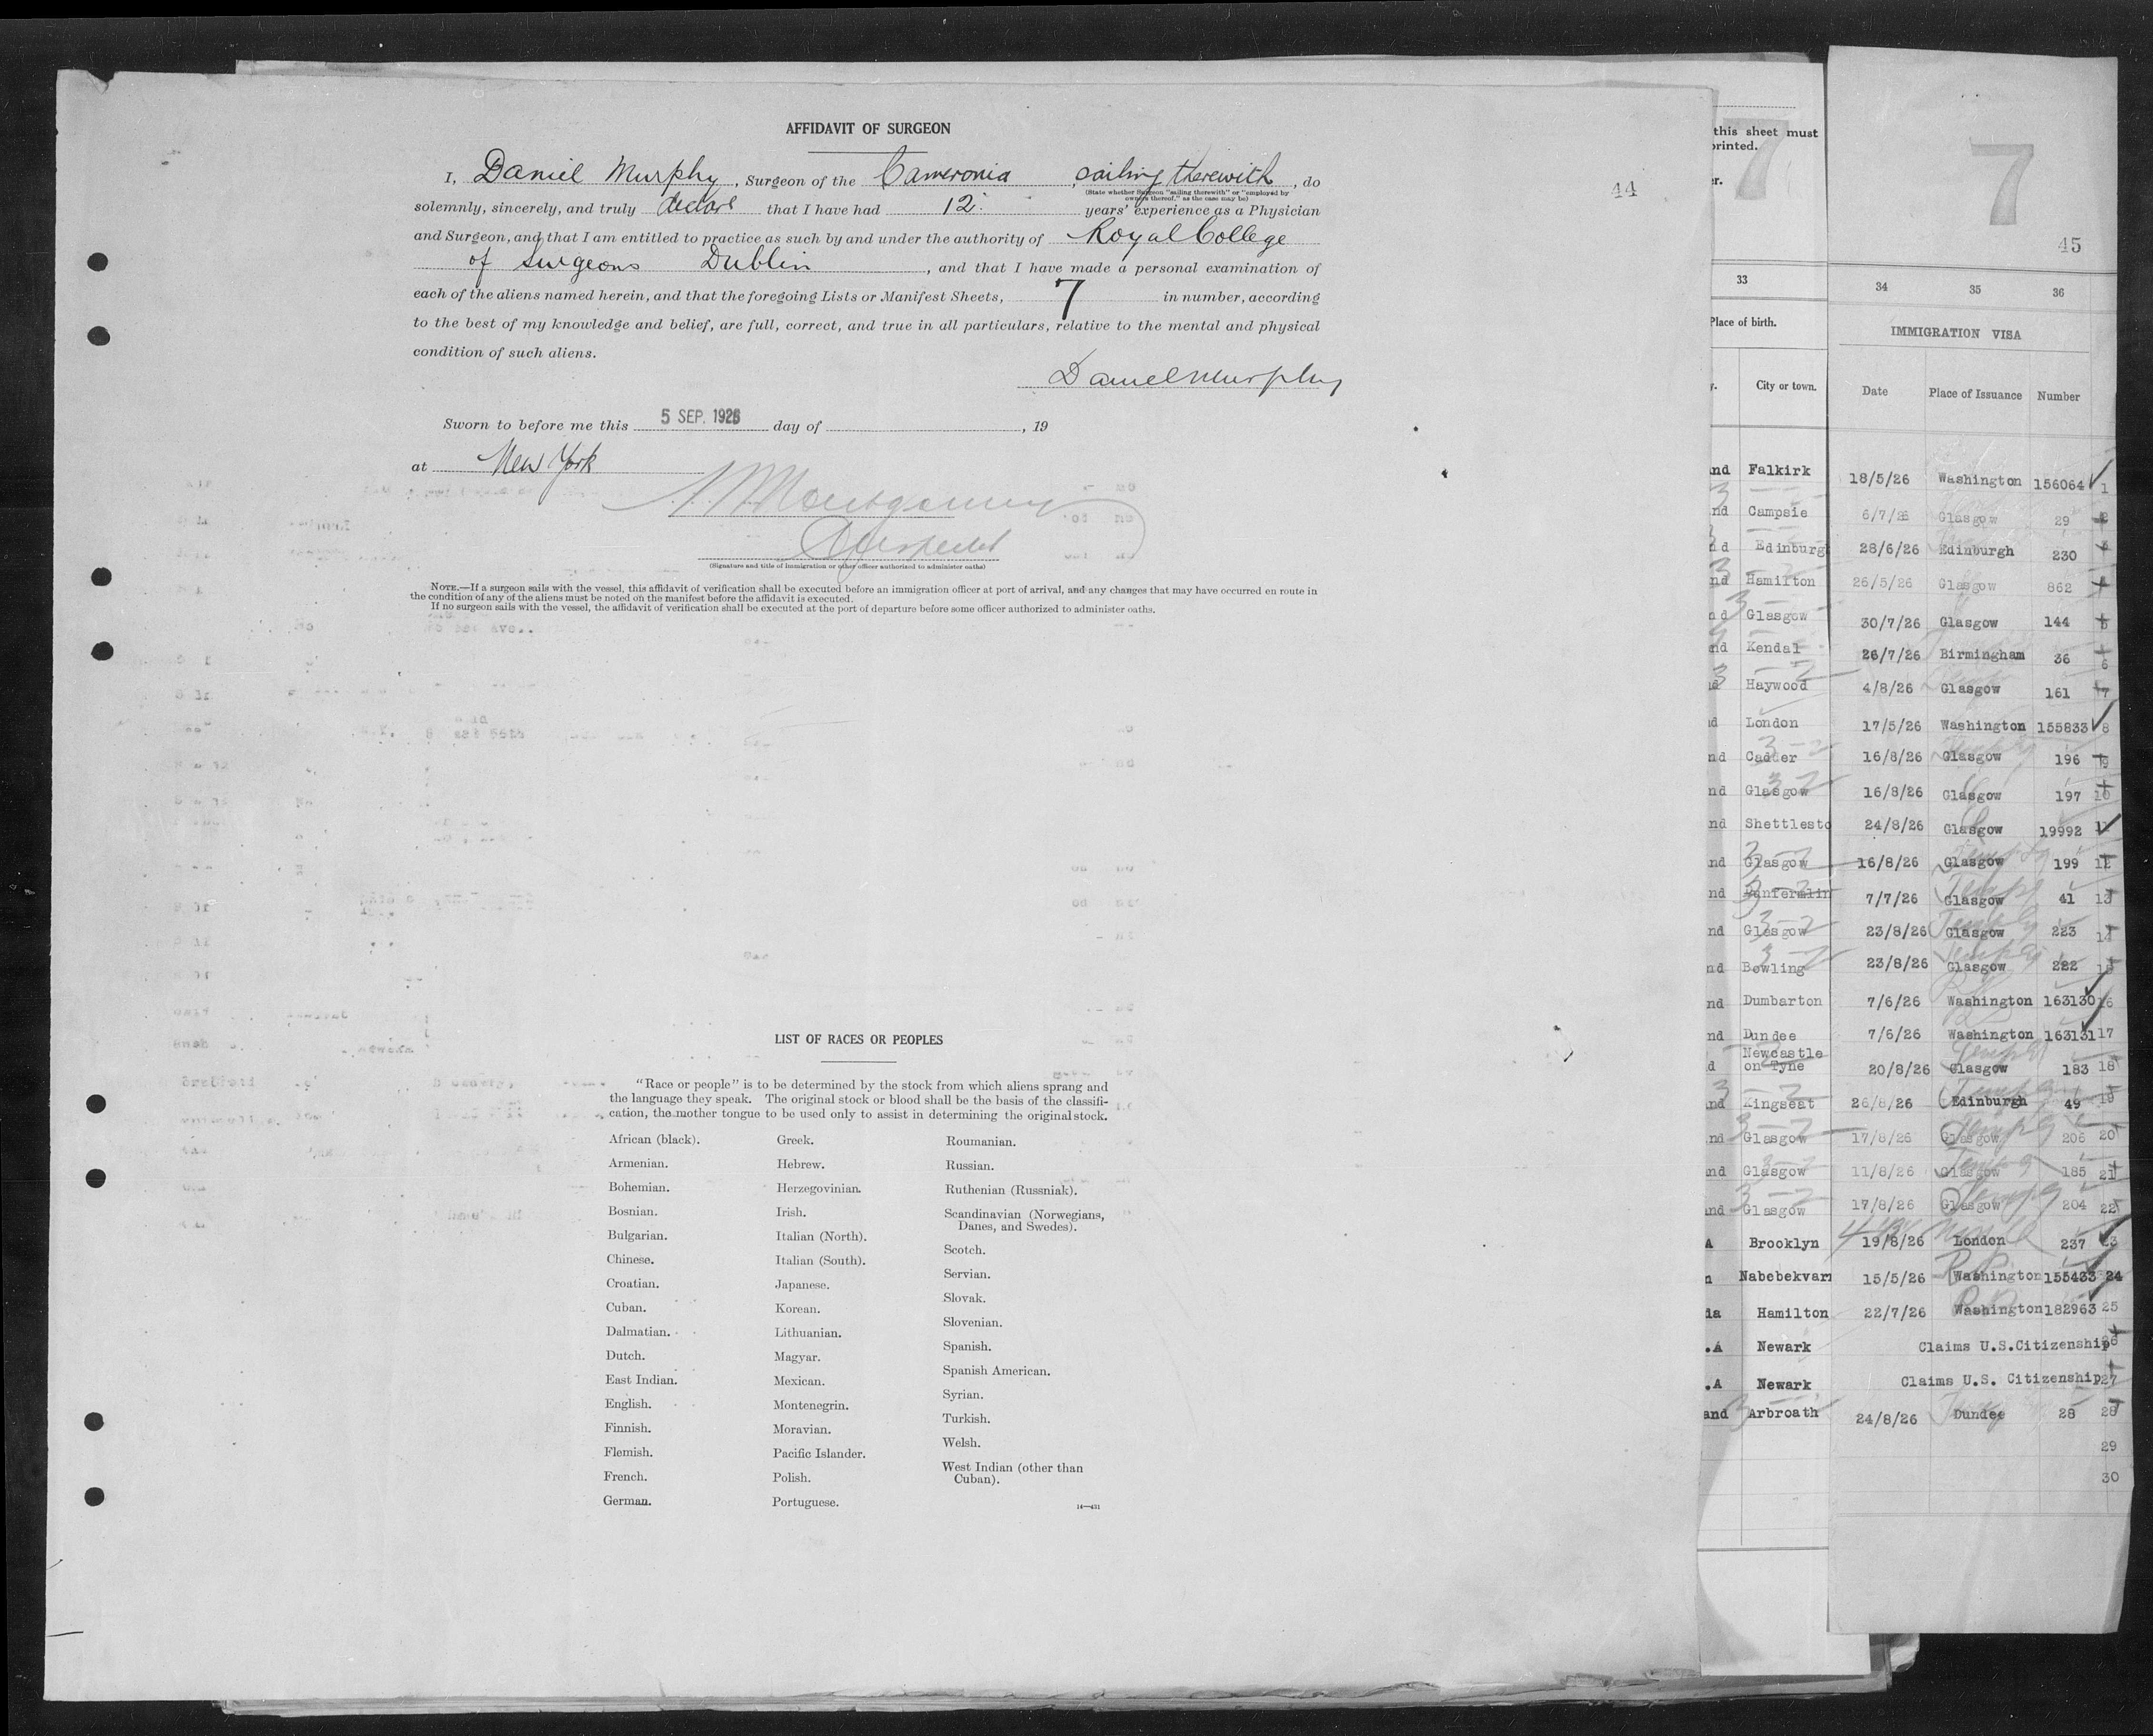 AFFIDAVIT OF SURGEON
I, Daniel Murphy, Surgeon of the Cameronia, sailing therewith, do
(State whether Surgeon "sailing therewith" or "employed by
owners thereof," as the case may be)
solemnly, sincerely, and truly declare that I have had 12 years' experience as a Physician
and Surgeon, and that I am entitled to practice as such by and under the authority of Royal College
of Surgeons Dublin, and that I have made a personal examination of
each of the aliens named herein, and that the foregoing Lists or Manifest Sheets, 7 in number, according
to the best of my knowledge and belief, are full, correct, and true in all particulars, relative to the mental and physical
condition of such aliens.
Daniel Murphy
Sworn to before me this 5 SEP. 1926 day of , 19
at New York
Montgomery
(Signature and title of immigration or other officer authorized to administer oaths)
NOTE.—If a surgeon sails with the vessel, this affidavit of verification shall be executed before an immigration officer at port of arrival, and any changes that may have occurred en route in
the condition of any of the aliens must be noted on the manifest before the affidavit is executed.
If no surgeon sails with the vessel, the affidavit of verification shall be executed at the port of departure before some officer authorized to administer oaths.
LIST OF RACES OR PEOPLES
"Race or people" is to be determined by the stock from which aliens sprang and
the language they speak. The original stock or blood shall be the basis of the classifi-
cation, the mother tongue to be used only to assist in determining the original stock.
African (black). Greek. Roumanian.
Armenian. Hebrew. Russian.
Bohemian. Herzegovinian. Ruthenian (Russniak).
Bosnian. Irish. Scandinavian (Norwegians,
Danes, and Swedes).
Bulgarian. Italian (North).
Scotch.
Chinese. Italian (South).
Servian.
Croatian. Japanese.
Slovak.
Cuban. Korean.
Slovenian.
Dalmatian. Lithuanian.
Spanish.
Dutch. Magyar.
Spanish American.
East Indian. Mexican.
Syrian.
English. Montenegrin.
Turkish.
Finnish. Moravian.
Welsh.
Flemish. Pacific Islander.
West Indian (other than
Cuban).
French. Polish.
German. Portuguese.
14—431
44
this sheet must
printed.
7
7
45
33 34 35 36
Place of birth. IMMIGRATION VISA
City or town. Date Place of Issuance Number
nd Falkirk 18/5/26 Washington 156064 1
nd Campsie 6/7/26 Glasgow 29 2
nd Edinburg 28/6/26 Edinburgh 230
nd Hamilton 26/5/26 Glasgow 862
nd Glasgow 30/7/26 Glasgow 144 5
nd Kendal 26/7/26 Birmingham 36 6
Haywood 4/8/26 Glasgow 161 7
d London 17/5/26 Washington 155833 8
nd Cadder 16/8/26 Glasgow 196 9
nd Glasgow 16/8/26 Glasgow 197 10
nd Shettlesto 24/8/26 Glasgow 19992 11
nd Glasgow 16/8/26 Glasgow 199 12
nd Dunfermlin 7/7/26 Glasgow 41 13
nd Glasgow 23/8/26 Glasgow 223 14
nd Bowling 23/8/26 Glasgow 222 15
nd Dumbarton 7/6/26 Washington 163130 16
nd Dundee 7/6/26 Washington 163131 17
Newcastle
d on Tyne 20/8/26 Glasgow 183 18
nd Kingseat 26/8/26 Edinburgh 49 19
nd Glasgow 17/8/26 Glasgow 206 20
nd Glasgow 11/8/26 Glasgow 185 21
nd Glasgow 17/8/26 Glasgow 204 22
A Brooklyn 19/8/26 London 237 23
n Nabebekvar 15/5/26 Washington 155433 24
da Hamilton 22/7/26 Washington 182963 25
.A Newark Claims U.S.Citizenship 26
.A Newark Claims U.S. Citizenship 27
and Arbroath 24/8/26 Dundee 28 28
29
30